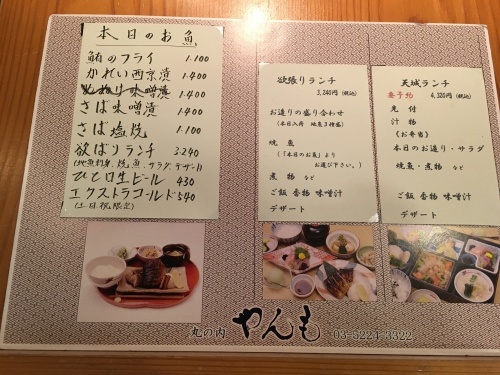 本日のお魚
鮪のフライ 1.100
かれい西京漬 1.400
味噌漬 1.400
さば味噌漬 1.400
さば塩焼 1.100
欲ばりランチ 3.240
(地魚刺身、焼魚、サラダ、デザート)
ひと口生ビール 430
エクストラコールド 540
(土日祝限定)
欲張りランチ
3,240円(税込)
お造りの盛り合わせ
(本日入荷 地魚3種盛)
焼魚
(「本日のお魚」より
お選び下さい。)
煮物 など
ご飯 香物 味噌汁
デザート
天城ランチ
要予約 4,320円(税込)
先付
汁物
(お弁当)
本日のお造り・サラダ
焼魚・煮物 など
ご飯 香物 味噌汁
デザート
丸の内 やんも 03-5224-3322